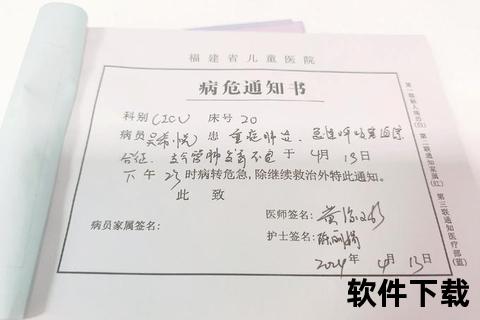 福建省儿童医院
病危通知书
科别 CICU 床号 20
病员 吴希悦 患 重症肺炎、急性呼吸窘迫综
合征、支气管肺发育不良 于 4月 13日
下午 23时病转危急,除继续救治外特此通知。
此 致
医师签名:黄
病员家属签名:
护士签名:陈丽娟
2024年 4月 13日
第一联新入病历(白) 第二联通知家属(红) 第三联通知医疗部(蓝)
软件下载